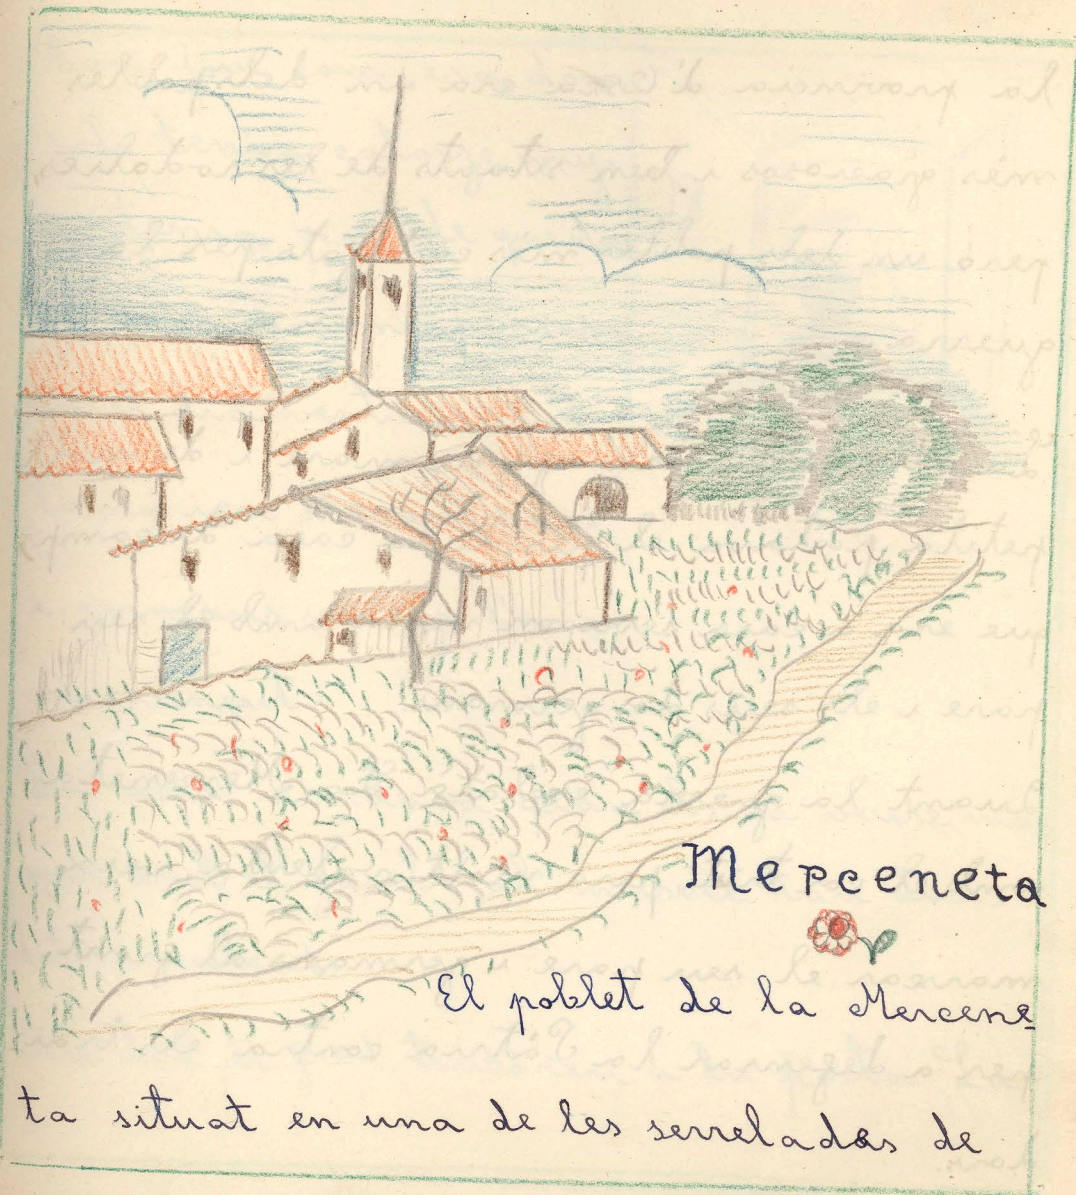 Merceneta
El poblet de la Mercene-
ta situat en una de les serrelades de